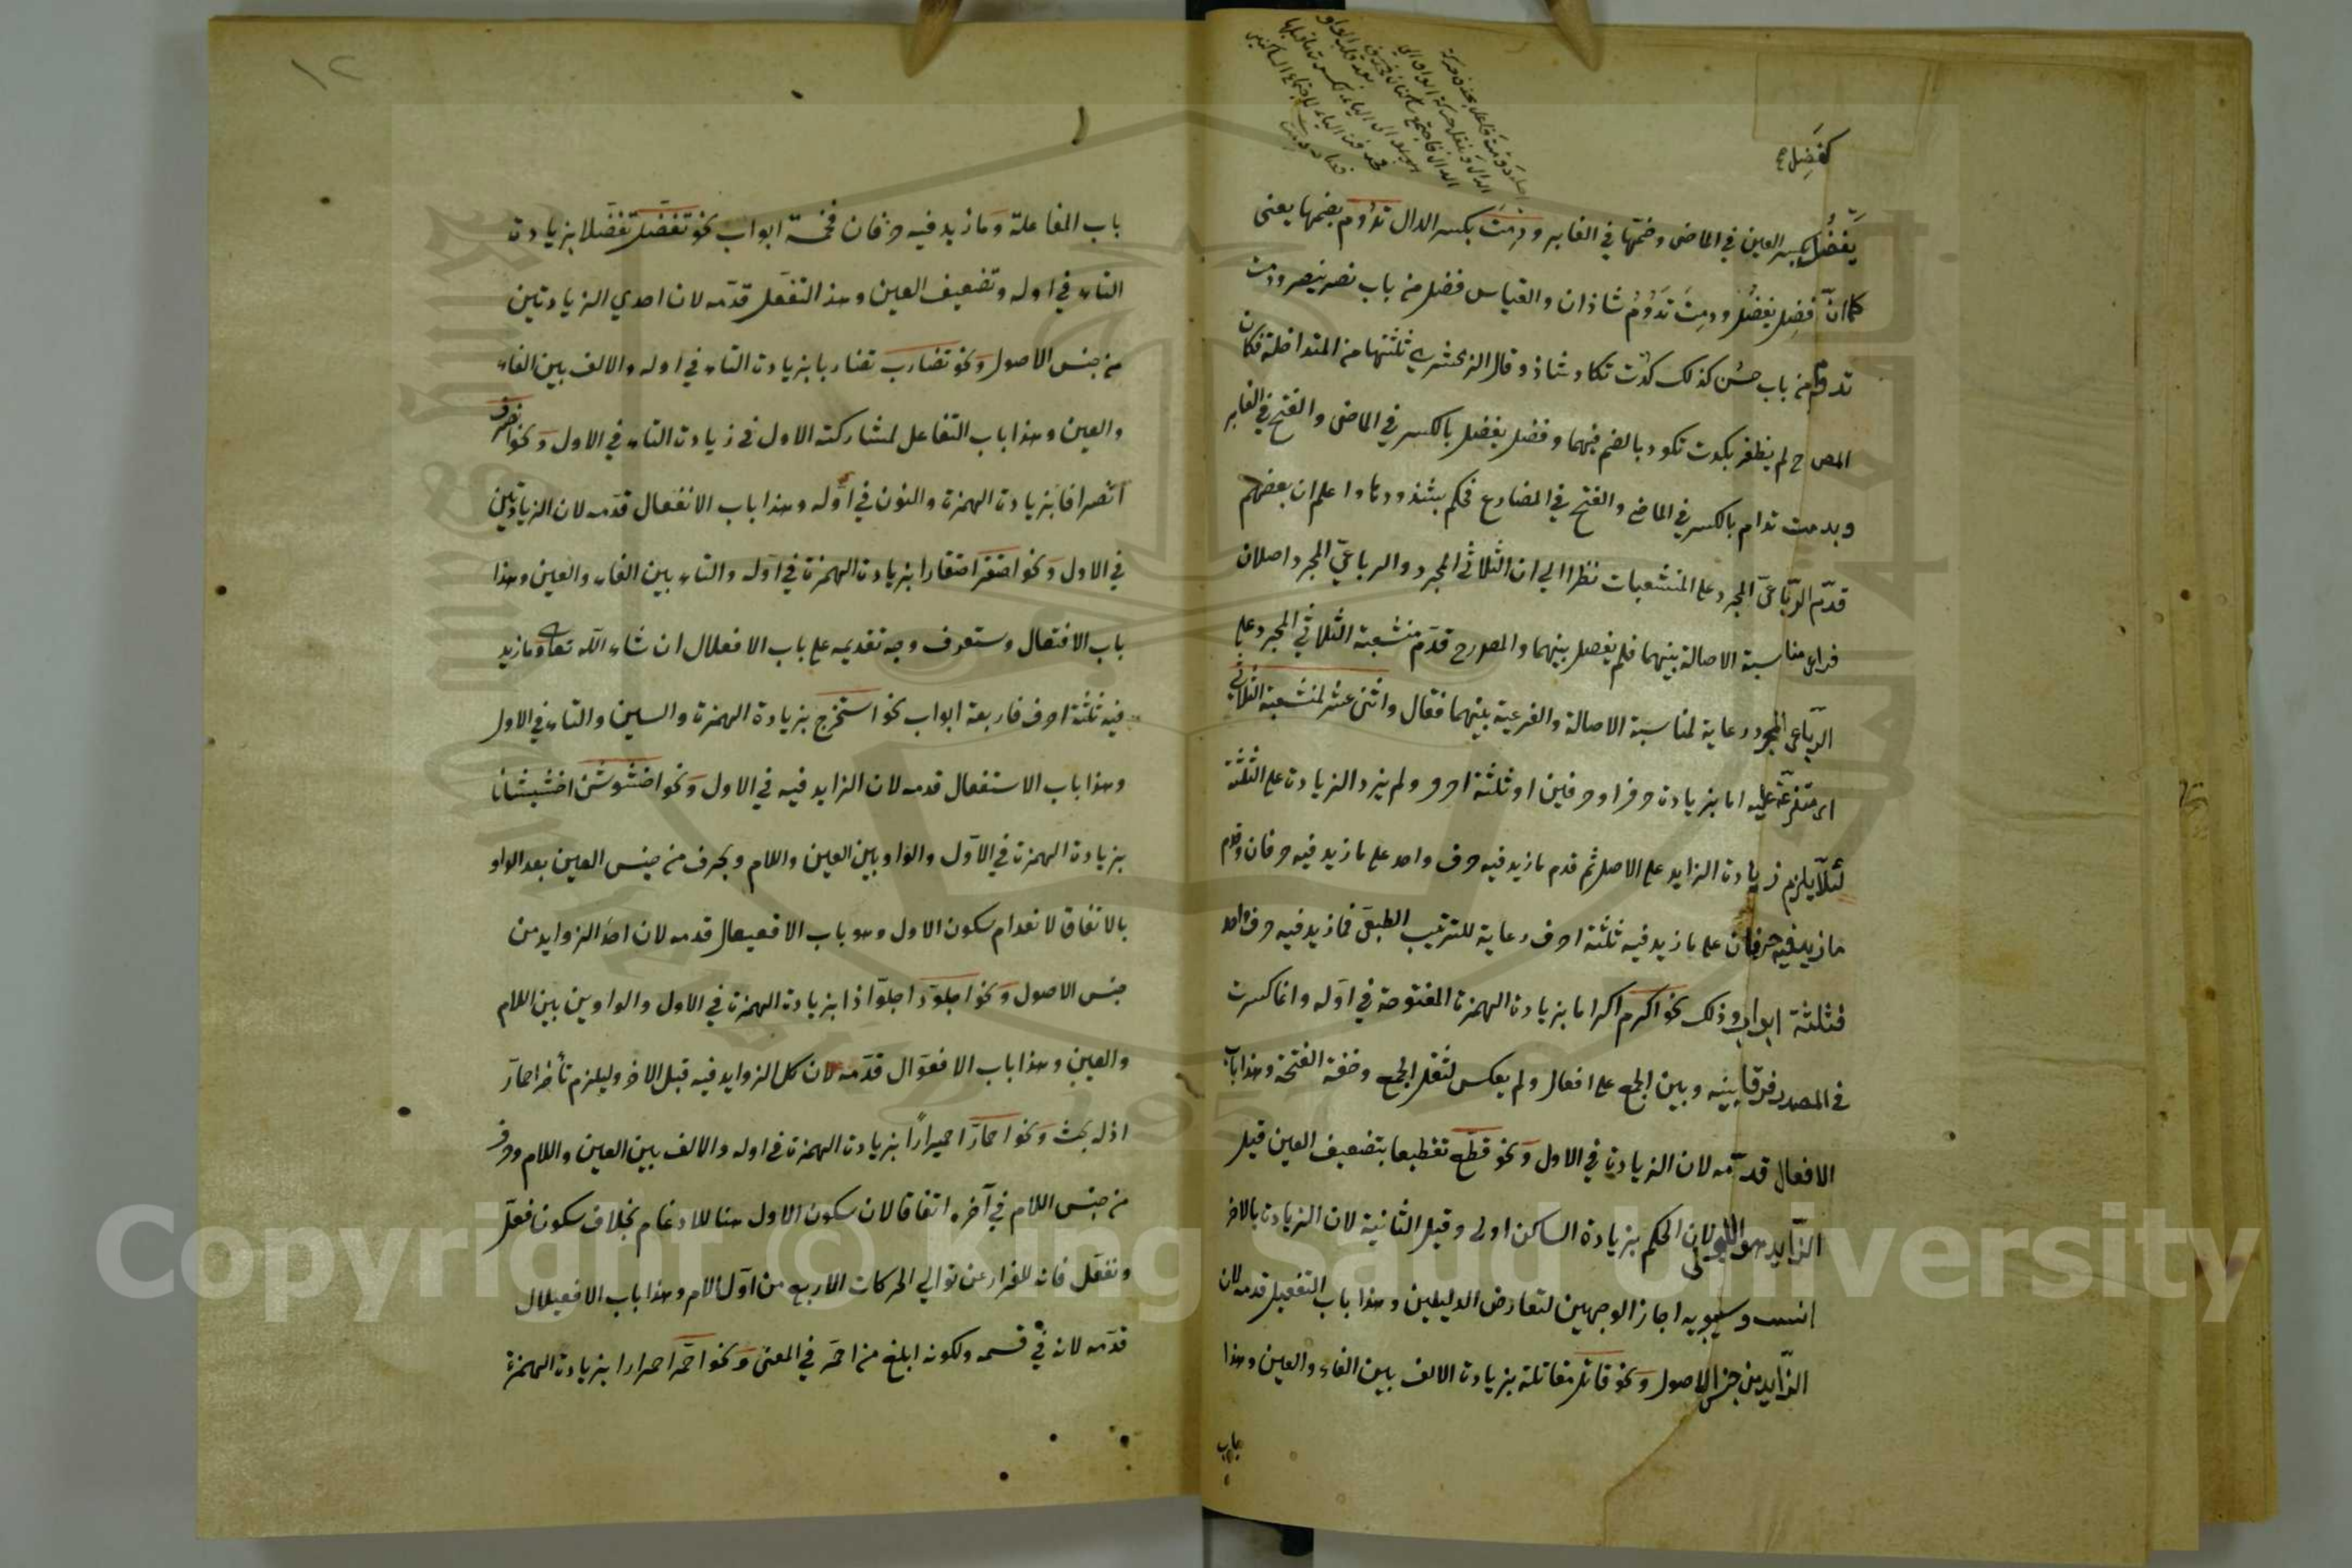 كفضل
يفضل بكسر العين في الماضي وضمها في الغابر ودمت بكسر الدال تدوم بضمها يعني
كما ان فضل يفضل ودمت تدوم شاذان والقياس فضل من باب نصر ينصر ودمت
تدوم من باب حسن كذلك كدت تكاد شاذ وقال الزمخشري ثلثتها من المتداخلة فكان
المص ح لم يظفر بكدت تكود بالضم فيهما وفضل يفضل بالكسر في الماضي والفتح في الغابر
وبدمت تدام بالكسر في الماضي والفتح في المضارع فحكم بشذوذها واعلم ان بعضهم
قدم الرباعي المجرد على المنشعبات نظرا الي ان الثلاثي المجرد والرباعي المجرد اصلان
فراعى مناسبة الاصالة بينهما فلم يفصل بينهما والمص رح قدم منشعبة الثلاثي المجرد على
الرباعي المجرد رعاية لمناسبة الاصالة والفرعية بينهما فقال واثني عشر لمنشعبة الثلاثي
اى متفرعة عليه اما بزيادة حرف او حرفين او ثلثة احرف ولم يزد الزيادة على الثلثة
لئلا يلزم زيادة الزايد على الاصل ثم قدم ما زيد فيه حرف واحد على ما زيد فيه حرفان وقدم
ما زيد فيه حرفان على ما زيد فيه ثلثة احرف رعاية للترتيب الطبيعي فما زيد فيه حرف واحد
فثلثة ابواب وذلك نحو اكرم اكراما بزيادة الهمزة المفتوحة في اوله وانما كسرت
في المصدر فرقا بينه وبين الجمع على افعال ولم يعكس لثقل الجمع وخفة الفتحة وهذا باب
الافعال قدمه لان الزيادة في الاول ونحو قطع تقطيعا بتضعيف العين قيل
الزايد هو الاولى لان الحكم بزيادة الساكن اولى وقيل الثانية لان الزيادة بالاخر
انسب وسيبويه اجاز الوجهين لتعارض الدليلين وهذا باب التفعيل قدمه لان
الزايد من جنس الاصول ونحو قاتل مقاتلة بزيادة الالف بين الفاء والعين وهذا
باب
١٢
باب المفاعلة وما زيد فيه حرفان فخمسة ابواب نحو تفضل تفضلا بزيادة
التاء في اوله وتضعيف العين وهذا التفعل قدمه لان احدي الزيادتين
من جنس الاصول ونحو تضارب تضاربا بزيادة التاء في اوله والالف بين الفاء
والعين وهذا باب التفاعل لمشاركته الاول في زيادة التاء في الاول ونحو انصرف
انصرافا بزيادة الهمزة والنون في اوله وهذا باب الانفعال قدمه لان الزيادتين
في الاول ونحو احتقر احتقارا بزيادة الهمزة في اوله والتاء بين الفاء والعين وهذا
باب الافتعال وستعرف وجه تقديمه على باب الافعلال ان شاء الله تعالى وما زيد
فيه ثلثة احرف فاربعة ابواب نحو استخرج بزيادة الهمزة والسين والتاء في الاول
وهذا باب الاستفعال قدمه لان الزايد فيه في الاول ونحو اخشوشن اخشيشانا
بزيادة الهمزة في الاول والواو بين العين واللام وبحرف من جنس العين بعد الواو
بالاتفاق لانعدام سكون الاول وهو باب الافعيعال قدمه لان احد الزوايد من
جنس الاصول ونحو اجلوذ اجلواذا بزيادة الهمزة في الاول والواوين بين اللام
والعين وهذا باب الافعوال قدمه لان كل الزوايد فيه قبل الاخر وليلزم تأخر احمار
اذله بحث ونحو احمار احميرارا بزيادة الهمزة في اوله والالف بين العين واللام وحرف
من جنس اللام في آخره اتفاقا لان سكون الاول هنا للادغام بخلاف سكون فعل
وتفعل فانه للفرار عن توالي الحركات الاربع من اول الامر وهذا باب الافعيلال
قدمه لانه في قسمه ولكونه ابلغ من احمر في المعنى ونحو احمر احمرارا بزيادة الهمزة
Copyright © King Saud University
1957